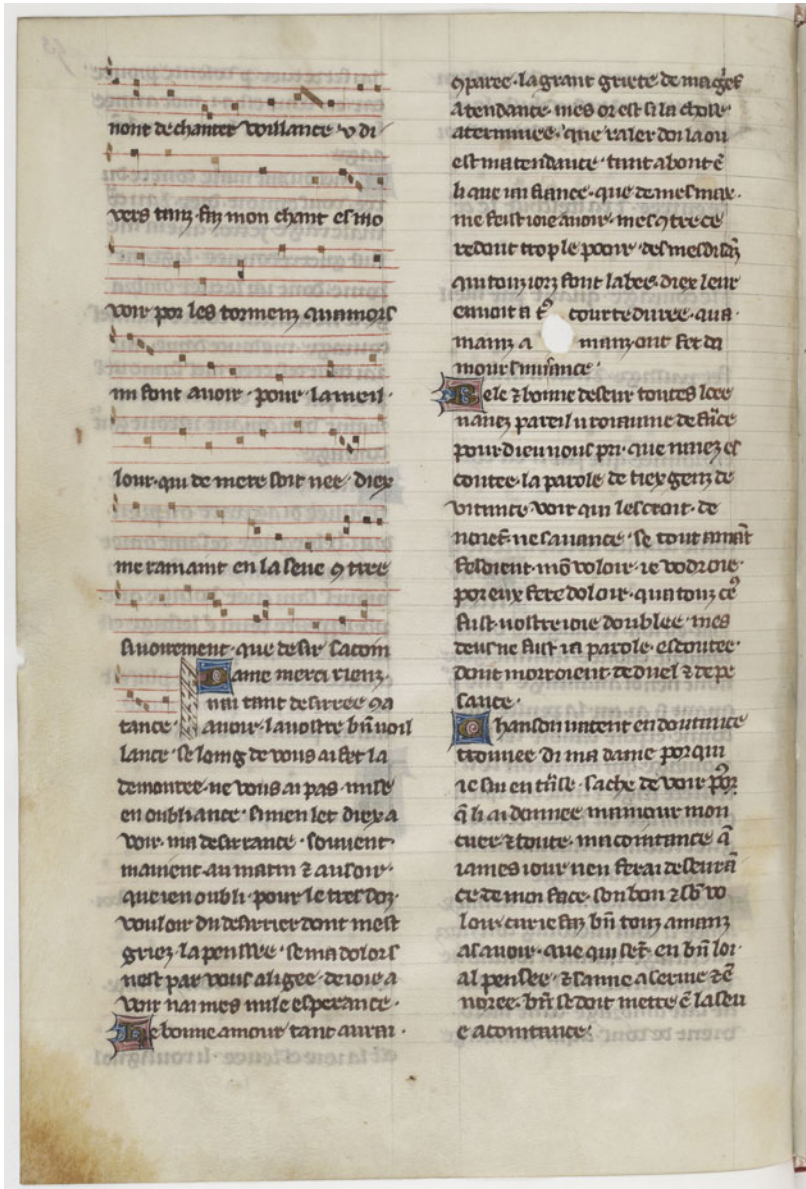 nont de chanter voillance · v di
vers tanz · faz mon chant es mo
voir por les tormenz quamors
mi font avoir · pour la meil
lour · qui de mere soit nee · diex
me ramaint en la seue 9 tree
sauvoirement · que desir sacoin
tance · Dame merci riens
nai tant desirree 9a
avoir · la vostre bn voil
lance · se loing de vous ai fet la
demoree · ne vous ai pas mise
en oubliance · si men let diex a
voir · ma desirrance · souvent
mavient au matin ⁊ au soir ·
que ien oubli · pour le tres doz
vouloir du desirrier dont mest
griez · la penssee · se ma dolors
nest par vous aligee · de ioie a
voir nai mes nule esperance ·
De bonne amour tant aurai ·
9paree · la grant griete de ma g̃ef
atendance · mes or est si la chose
aterminee · que raler doi la ou
est matendance · tant a bonte ẽ
li que iai fiance · que de mes max
me feist ioie avoir · mes 9tre ce
redout trop le pooir · des mesdisãz
qui touz iorz font labeb · diex leur
envoit a t courte duree · qua
mainz a manz ont fet da
mour nuisance ·
Bele ⁊ bonne deseur toutes lee
navez pareil u roiaume de fãce
pour dieu vous pri · que naiez es
coutee · la parole de tiex genz de
vitance · voir qui les croit · de
noiet · ne savance · se tout amãt
fesoient · mõ voloir · ie vodroie ·
por eux fere doloir · qua touz ce
fust · vostre ioie doublee · mes
deus ne fust ia parole · escoutee ·
dont morroient de duel ⁊ de pe
sance ·
Chanson vaten t en doutance
trouuee di ma dame por qui
ie sui en tñse · sache de voir por
q̃ li ai donnee mamour mon
cuer ⁊ toute · macointance q̃
iames iour nen ferai deseurã
ce de moi face · son bon ⁊ sõ vo
loir · car ie faz bn touz amanz
asavoir · que qui set en bn loi
al pensee · ⁊ sanne a servie ⁊ ẽ
noree · bn se doit metre ẽ la seu
e acointance ·